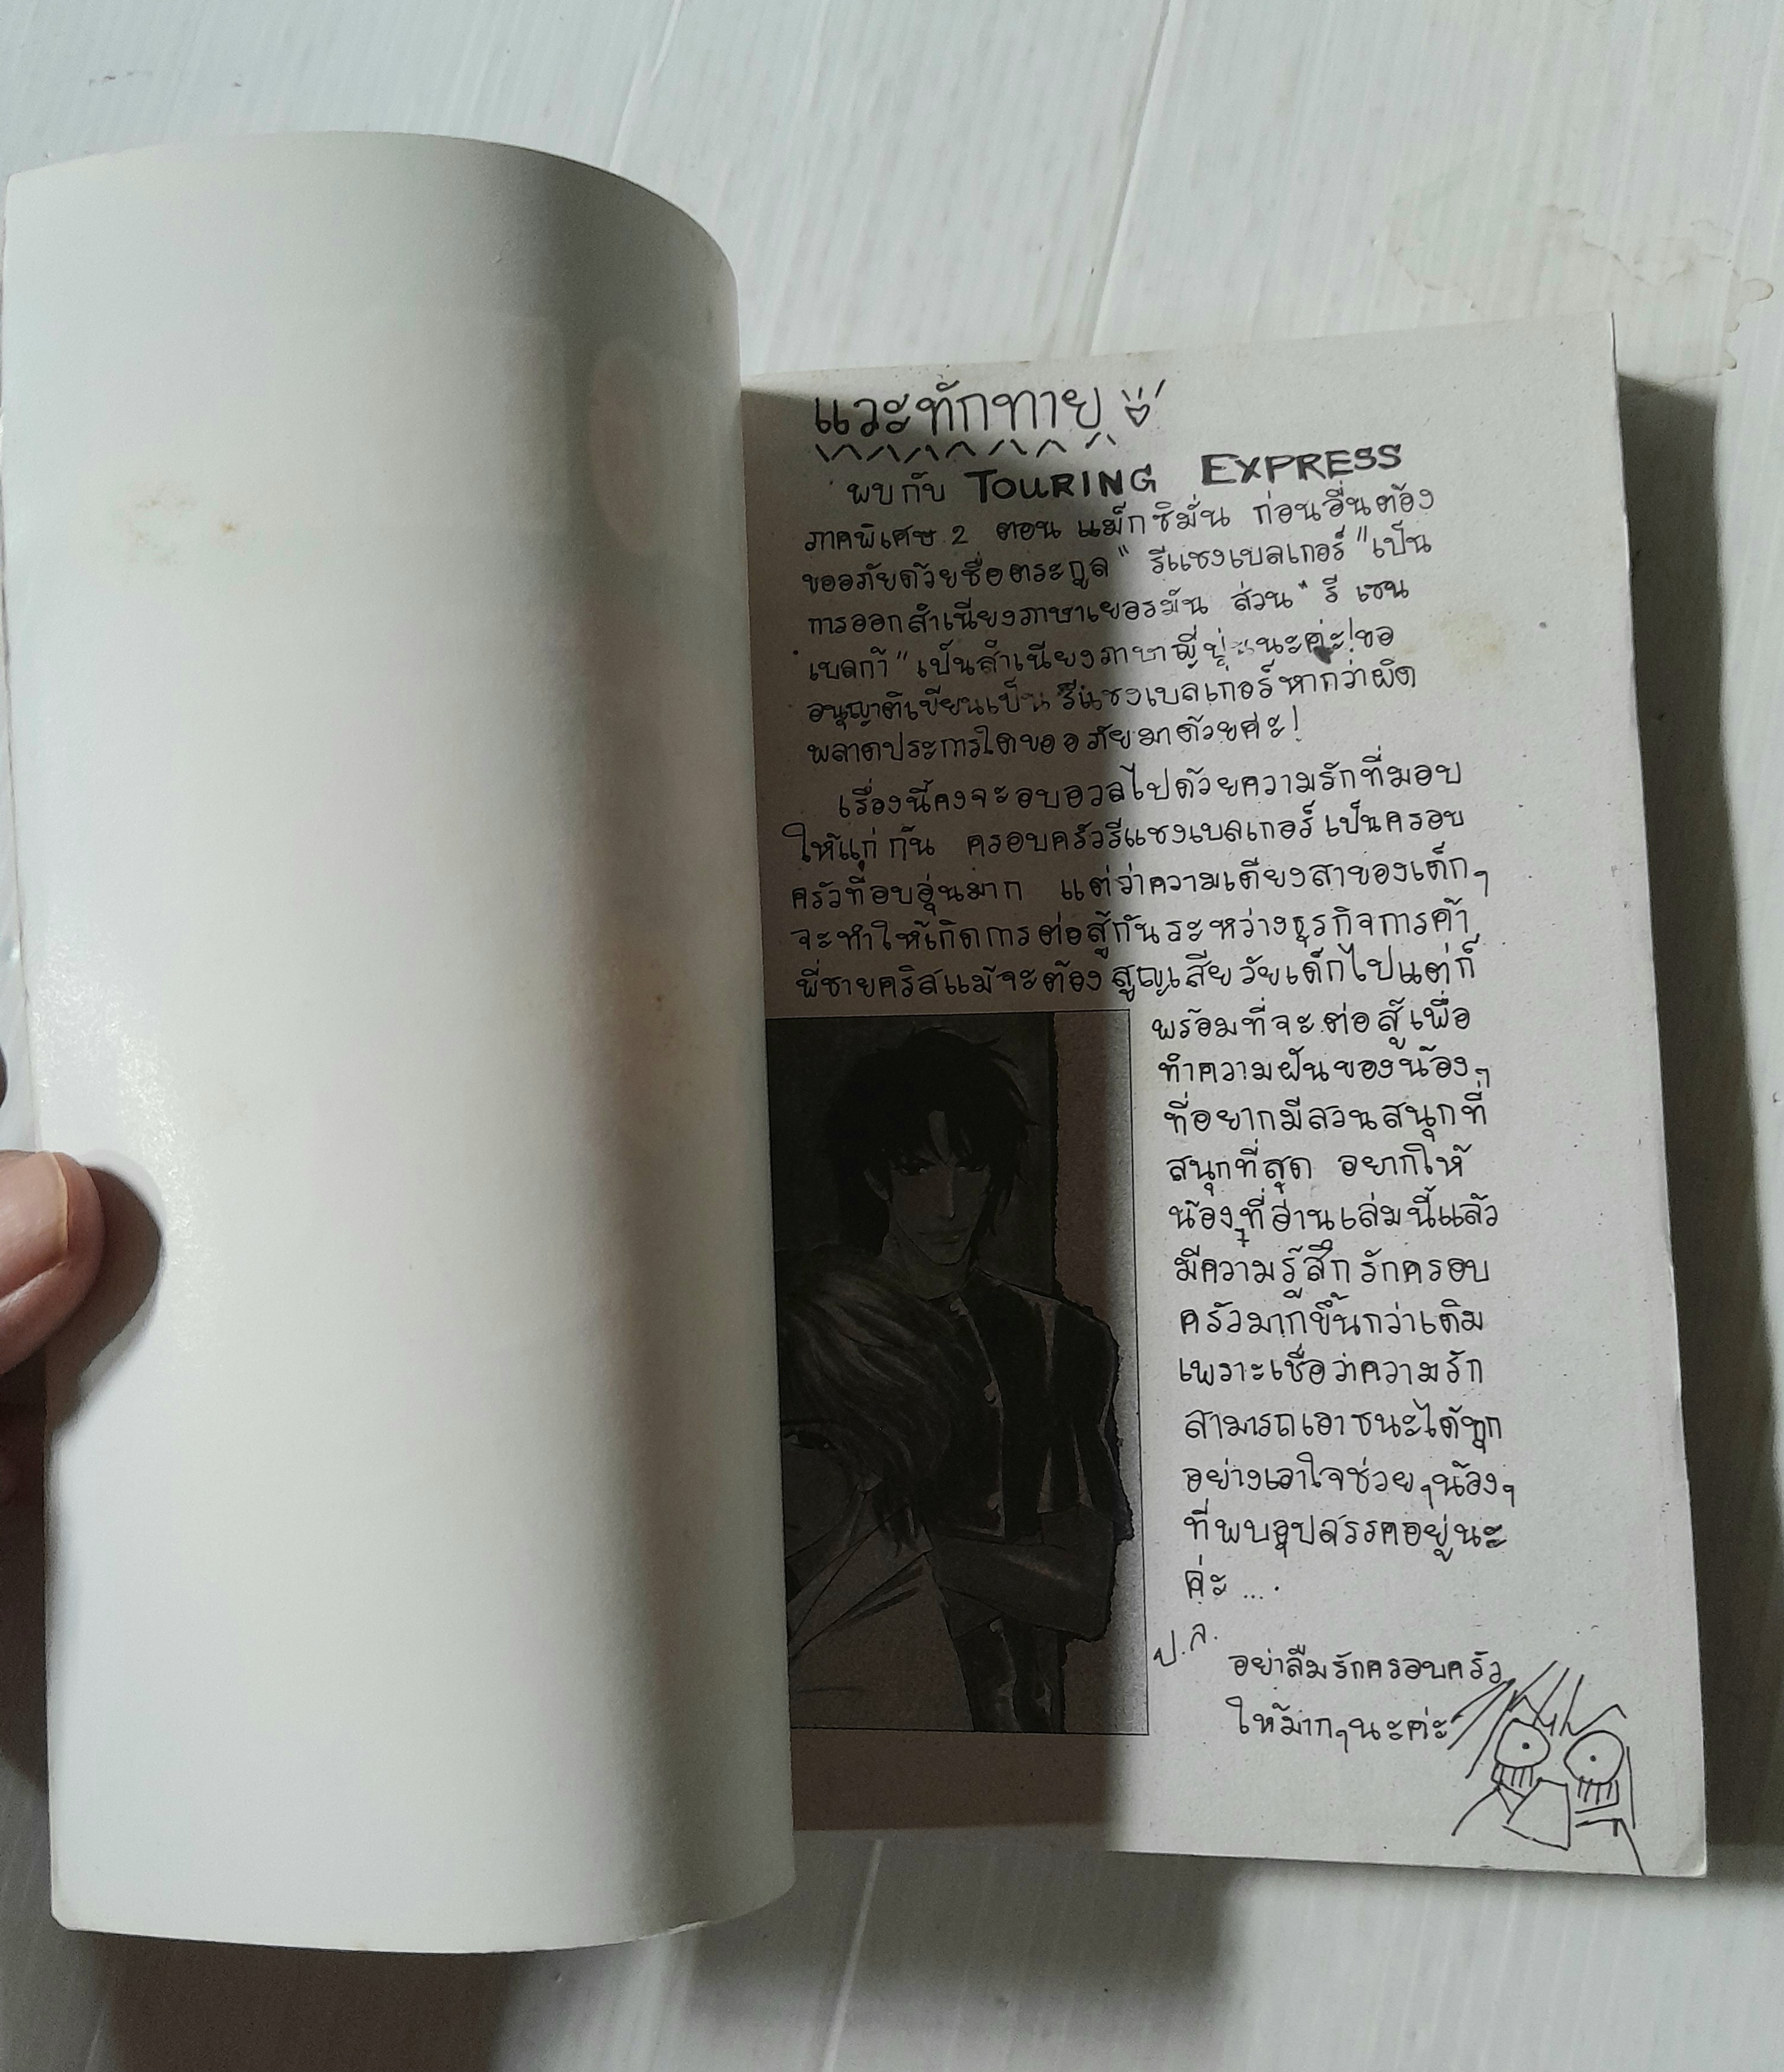 แวะทักทาย
พบกับ TOURING EXPRESS
ภาคพิเศษ 2 ตอน แม็กซิมั่น ก่อนอื่นต้อง
ขออภัยด้วยชื่อตระกูล " รีแชงเบลเกอร์ " เป็น
การออกสำเนียงภาษาเยอรมัน ส่วน " รี เชน
เบลก้า " เป็นสำเนียงภาษาญี่ปุ่นนะค่ะ! ขอ
อนุญาติเขียนเป็น รีแชงเบลเกอร์ หากว่าผิด
พลาดประการใดขออภัยมาด้วยค่ะ!
เรื่องนี้คงจะอบอวลไปด้วยความรักที่มอบ
ให้แก่กัน ครอบครัวรีแชงเบลเกอร์ เป็นครอบ
ครัวที่อบอุ่นมาก แต่ว่าความเดียงสาของเด็กๆ
จะทำให้เกิดการต่อสู้กันระหว่างธุรกิจการค้า
พี่ชายคริสแม้จะต้องสูญเสียวัยเด็กไปแต่ก็
พร้อมที่จะต่อสู้เพื่อ
ทำความฝันของน้องๆ
ที่อยากมีสวนสนุกที่
สนุกที่สุด อยากให้
น้องๆที่อ่านเล่มนี้แล้ว
มีความรู้สึกรักครอบ
ครัวมากขึ้นกว่าเดิม
เพราะเชื่อว่าความรัก
สามารถเอาชนะได้ทุก
อย่างเอาใจช่วยๆน้องๆ
ที่พบอุปสรรคอยู่นะ
ค่ะ ....
ป.ล. อย่าลืมรักครอบครัว
ให้มากๆนะค่ะ